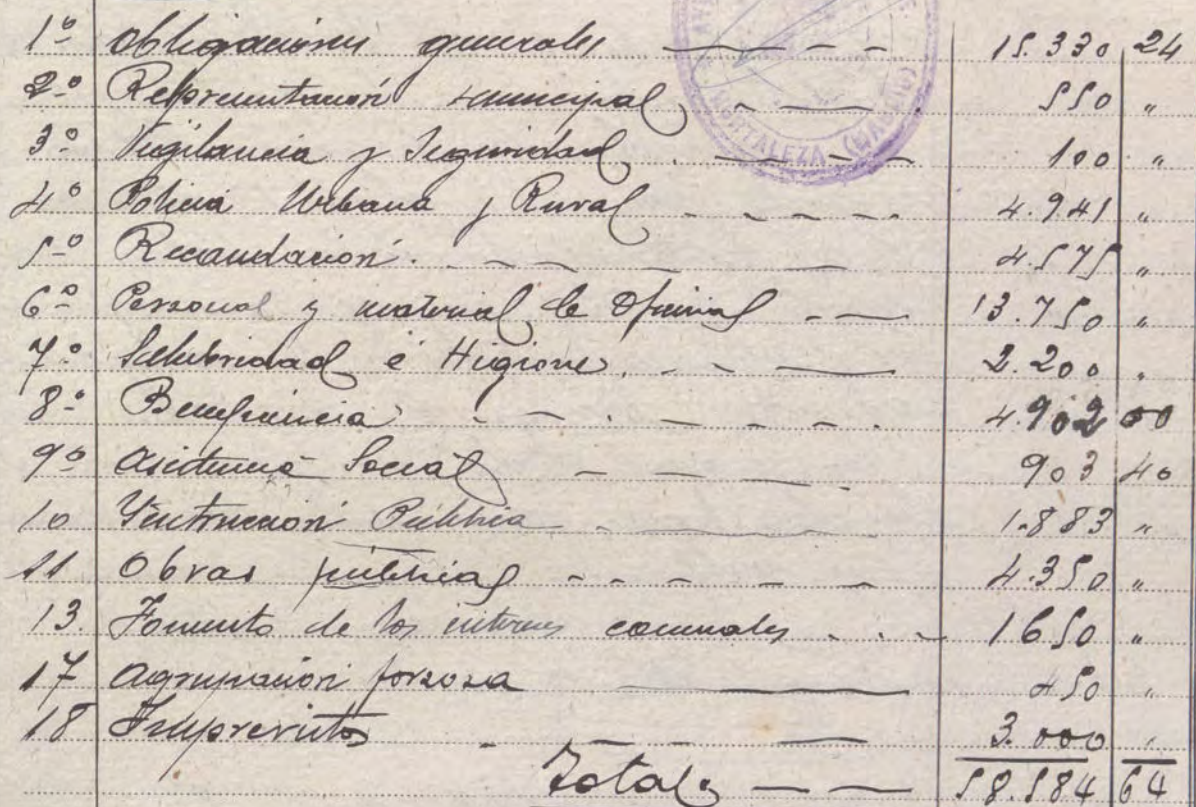 HORTALEZA (MADRID)
1º Obligaciones generales 15.330 24
2º Representación municipal 550 "
3º Vigilancia y Seguridad 100 "
4º Policia Urbana y Rural 4.941 "
5º Recaudación 4.575 "
6º Personal y material de Oficinas 13.750 "
7º Salubridad é Higiene 2.200 "
8º Beneficencia 4.902 00
9º Asistencia Social 903 40
10 Instrucción Publica 1.883 "
11 Obras publicas 4.350 "
13. Fomento de los intereses comunales 1650 "
17 Agrupación forzosa 450 "
18 Imprevistos 3.000 "
Total 58.584 64